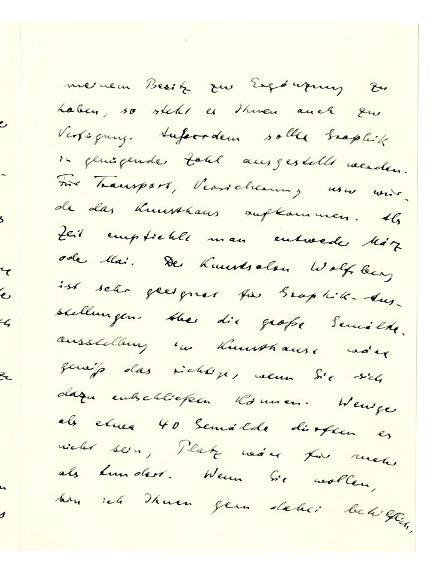 meinem Besitz zur Ergänzung zu
haben, so steht er Ihnen auch zur
Verfügung. Außerdem sollte Graphik
in genügender Zahl ausgestellt werden.
Für Transport, Versicherung usw wür-
de das Kunsthaus aufkommen. Als
Zeit empfiehlt man entweder März
oder Mai. Der Kunstsalon Wolfsberg
ist sehr geeignet für Graphik-Aus-
stellungen. Aber die große Gemälde-
ausstellung im Kunsthause wäre
gewiß das richtige, wenn Sie sich
dazu entschließen können. Weniger
als etwa 40 Gemälde dürften es
nicht sein, Platz wäre für mehr
als hundert. Wenn Sie wollen,
bin ich Ihnen gern dabei behilflich,